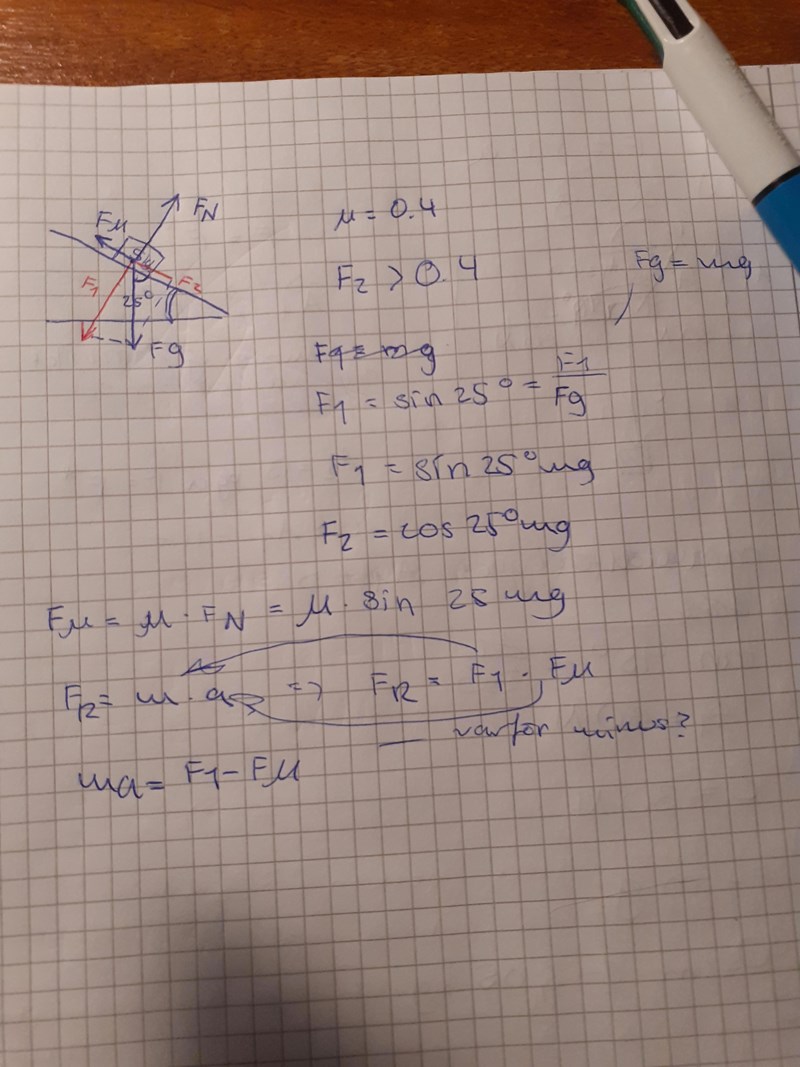 FN
Fμ
F1
F2
25°
Fg
μ = 0.4
F2 > 0.4
Fg = mg
Fg = mg
F1 = sin 25° = F1/Fg
F1 = sin 25° mg
F2 = cos 25° mg
Fμ = μ · FN = μ · sin 25 mg
FR = m · a => FR = F1 · Fμ
— varför minus?
ma = F1 - Fμ